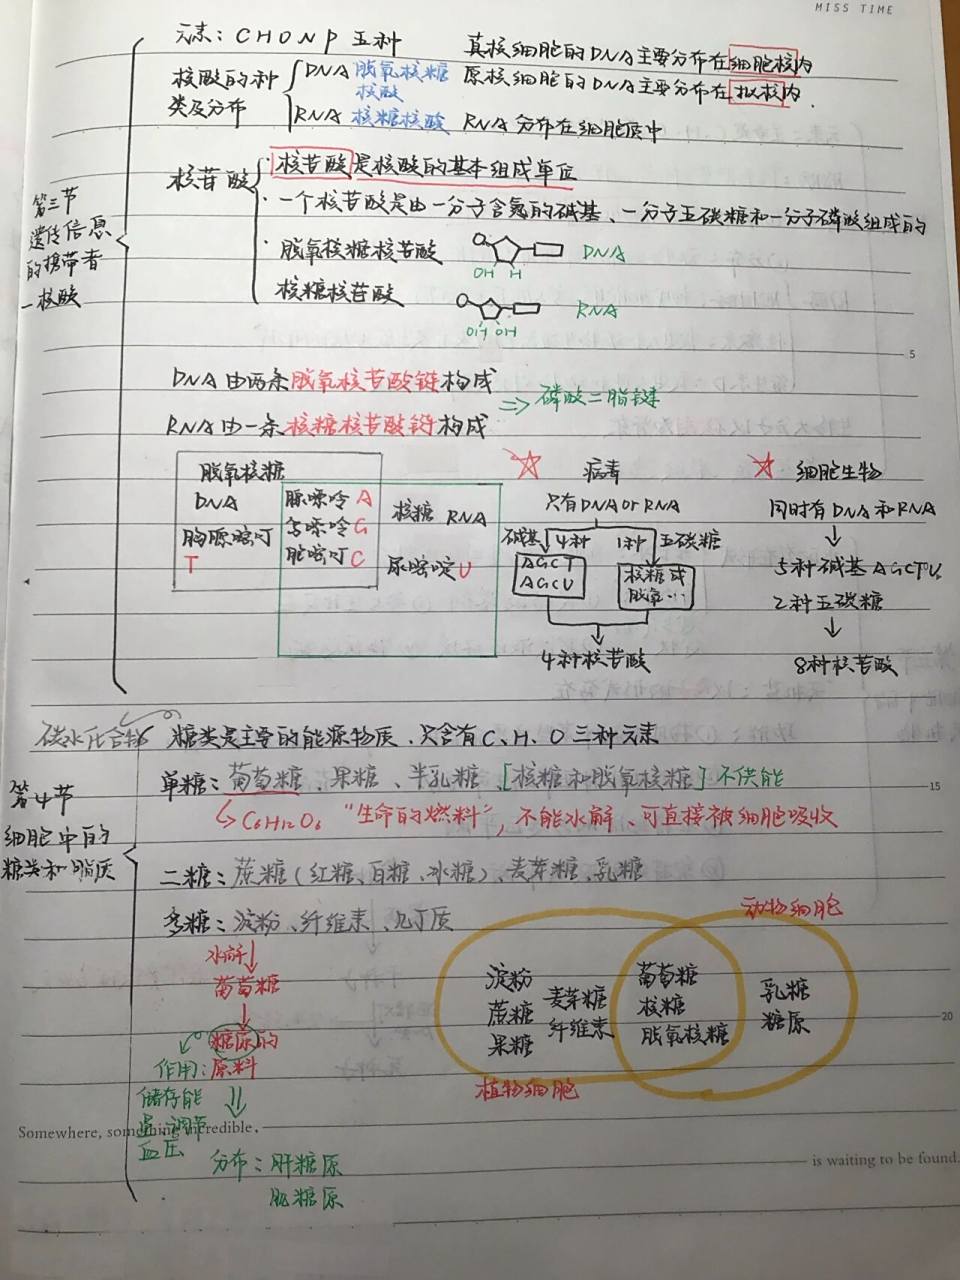 MISS TIME
元素：C H O N P 五种
真核细胞的DNA主要分布在细胞核内
核酸的种类及分布
DNA 脱氧核糖核酸
原核细胞的DNA主要分布在拟核内.
RNA 核糖核酸
RNA 分布在细胞质中
第三节
遗传信息
的携带者
—核酸
核苷酸
· 核苷酸是核酸的基本组成单位
· 一个核苷酸是由一分子含氮的碱基、一分子五碳糖和一分子磷酸组成的
· 脱氧核糖核苷酸
OH H
DNA
核糖核苷酸
OH OH
RNA
5
DNA 由两条脱氧核苷酸链构成
⇒ 磷酸二脂键
RNA 由一条核糖核苷酸链构成
脱氧核糖
DNA
胸腺嘧啶
T
腺嘌呤 A
鸟嘌呤 G
胞嘧啶 C
核糖 RNA
尿嘧啶 U
☆ 病毒
只有DNA or RNA
碱基 4种
1种 五碳糖
AGCT
AGCU
核糖或
脱氧…
4种核苷酸
☆ 细胞生物
同时有DNA和RNA
5种碱基AGCTU
2种五碳糖
8种核苷酸
碳水化合物
糖类是主要的能源物质、只含有C、H、O三种元素
第4节
细胞中的
糖类和脂质
单糖：葡萄糖、果糖、半乳糖、[核糖和脱氧核糖] 不供能
15
C6H12O6 “生命的燃料”，不能水解、可直接被细胞吸收
二糖：蔗糖（红糖、白糖、冰糖）、麦芽糖、乳糖
多糖：淀粉、纤维素、几丁质
水解
葡萄糖
糖原的
原料
作用：
储存能
量，调节
血压
分布：肝糖原
肌糖原
动物细胞
淀粉
蔗糖
果糖
麦芽糖
纤维素
葡萄糖
核糖
脱氧核糖
乳糖
糖原
20
植物细胞
Somewhere, something incredible,
is waiting to be found.